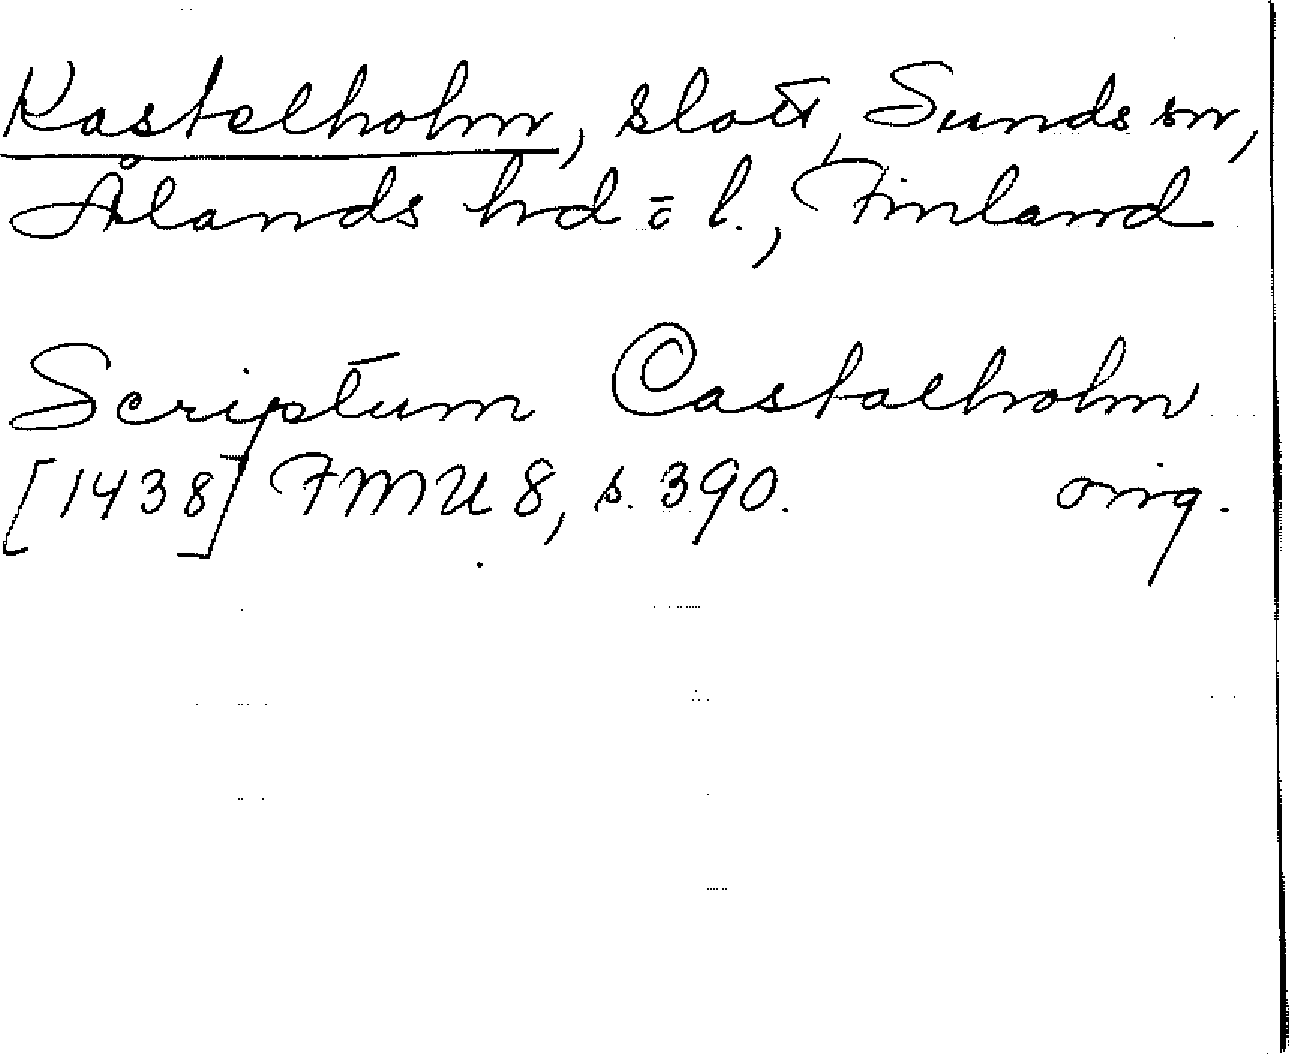 Kastelholm, slott, Sunds sn,
Ålands hd o l., Finland
Scriptum Castaelholm
[1438] FMU 8, s. 390. orig.